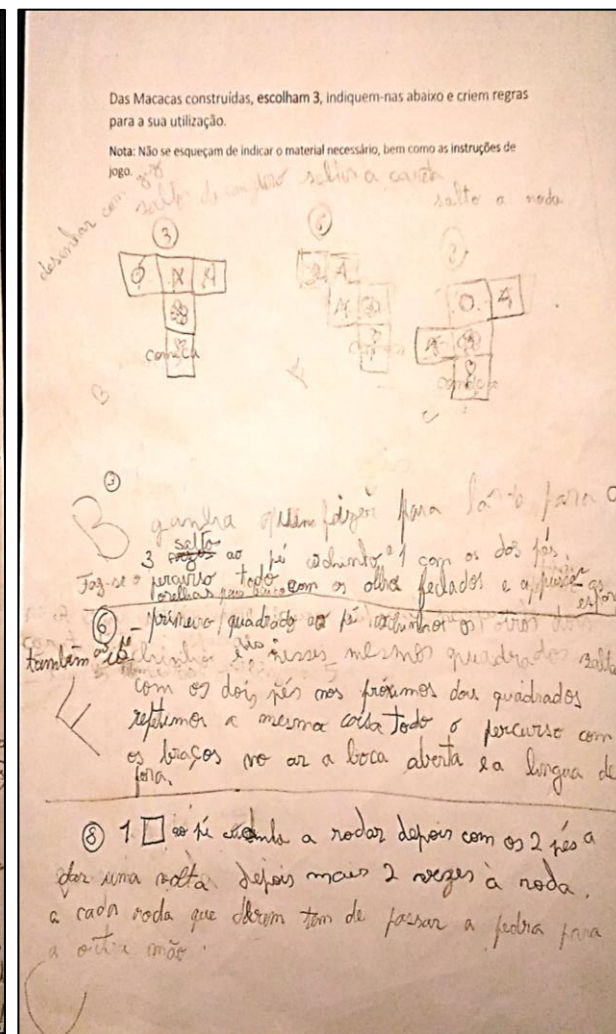 Das Macacas construídas, escolham 3, indiquem-nas abaixo e criem regras
para a sua utilização.
Nota: Não se esqueçam de indicar o material necessário, bem como as instruções de
jogo.
desenhar com giz
salto de canguru saltos a
salto a roda
3 6 8
começa
começa
começa
B
F
C
3
B ganha quem fizer para lá e para c
3 salto ao pé cochinho 1 com os dos pés.
Faz-se o percurso todo com os olhos fechados e a puxar as
orelhas para baixo
6 - primeiro quadrado ao pé cochinho os
também ao pé cochinho e nesses mesmos quadrados salta
com os dois pés nos próximos dois quadrados
F repetimos a mesma coisa todo o percurso com
os braços no ar a boca aberta e a lingua de
fora.
8 1 □ ao pé a rodar depois com os 2 pés a
dar uma volta depois mais 2 vezes à roda.
a cada roda que derem tem de passar a pedra para
a outra mão.
C